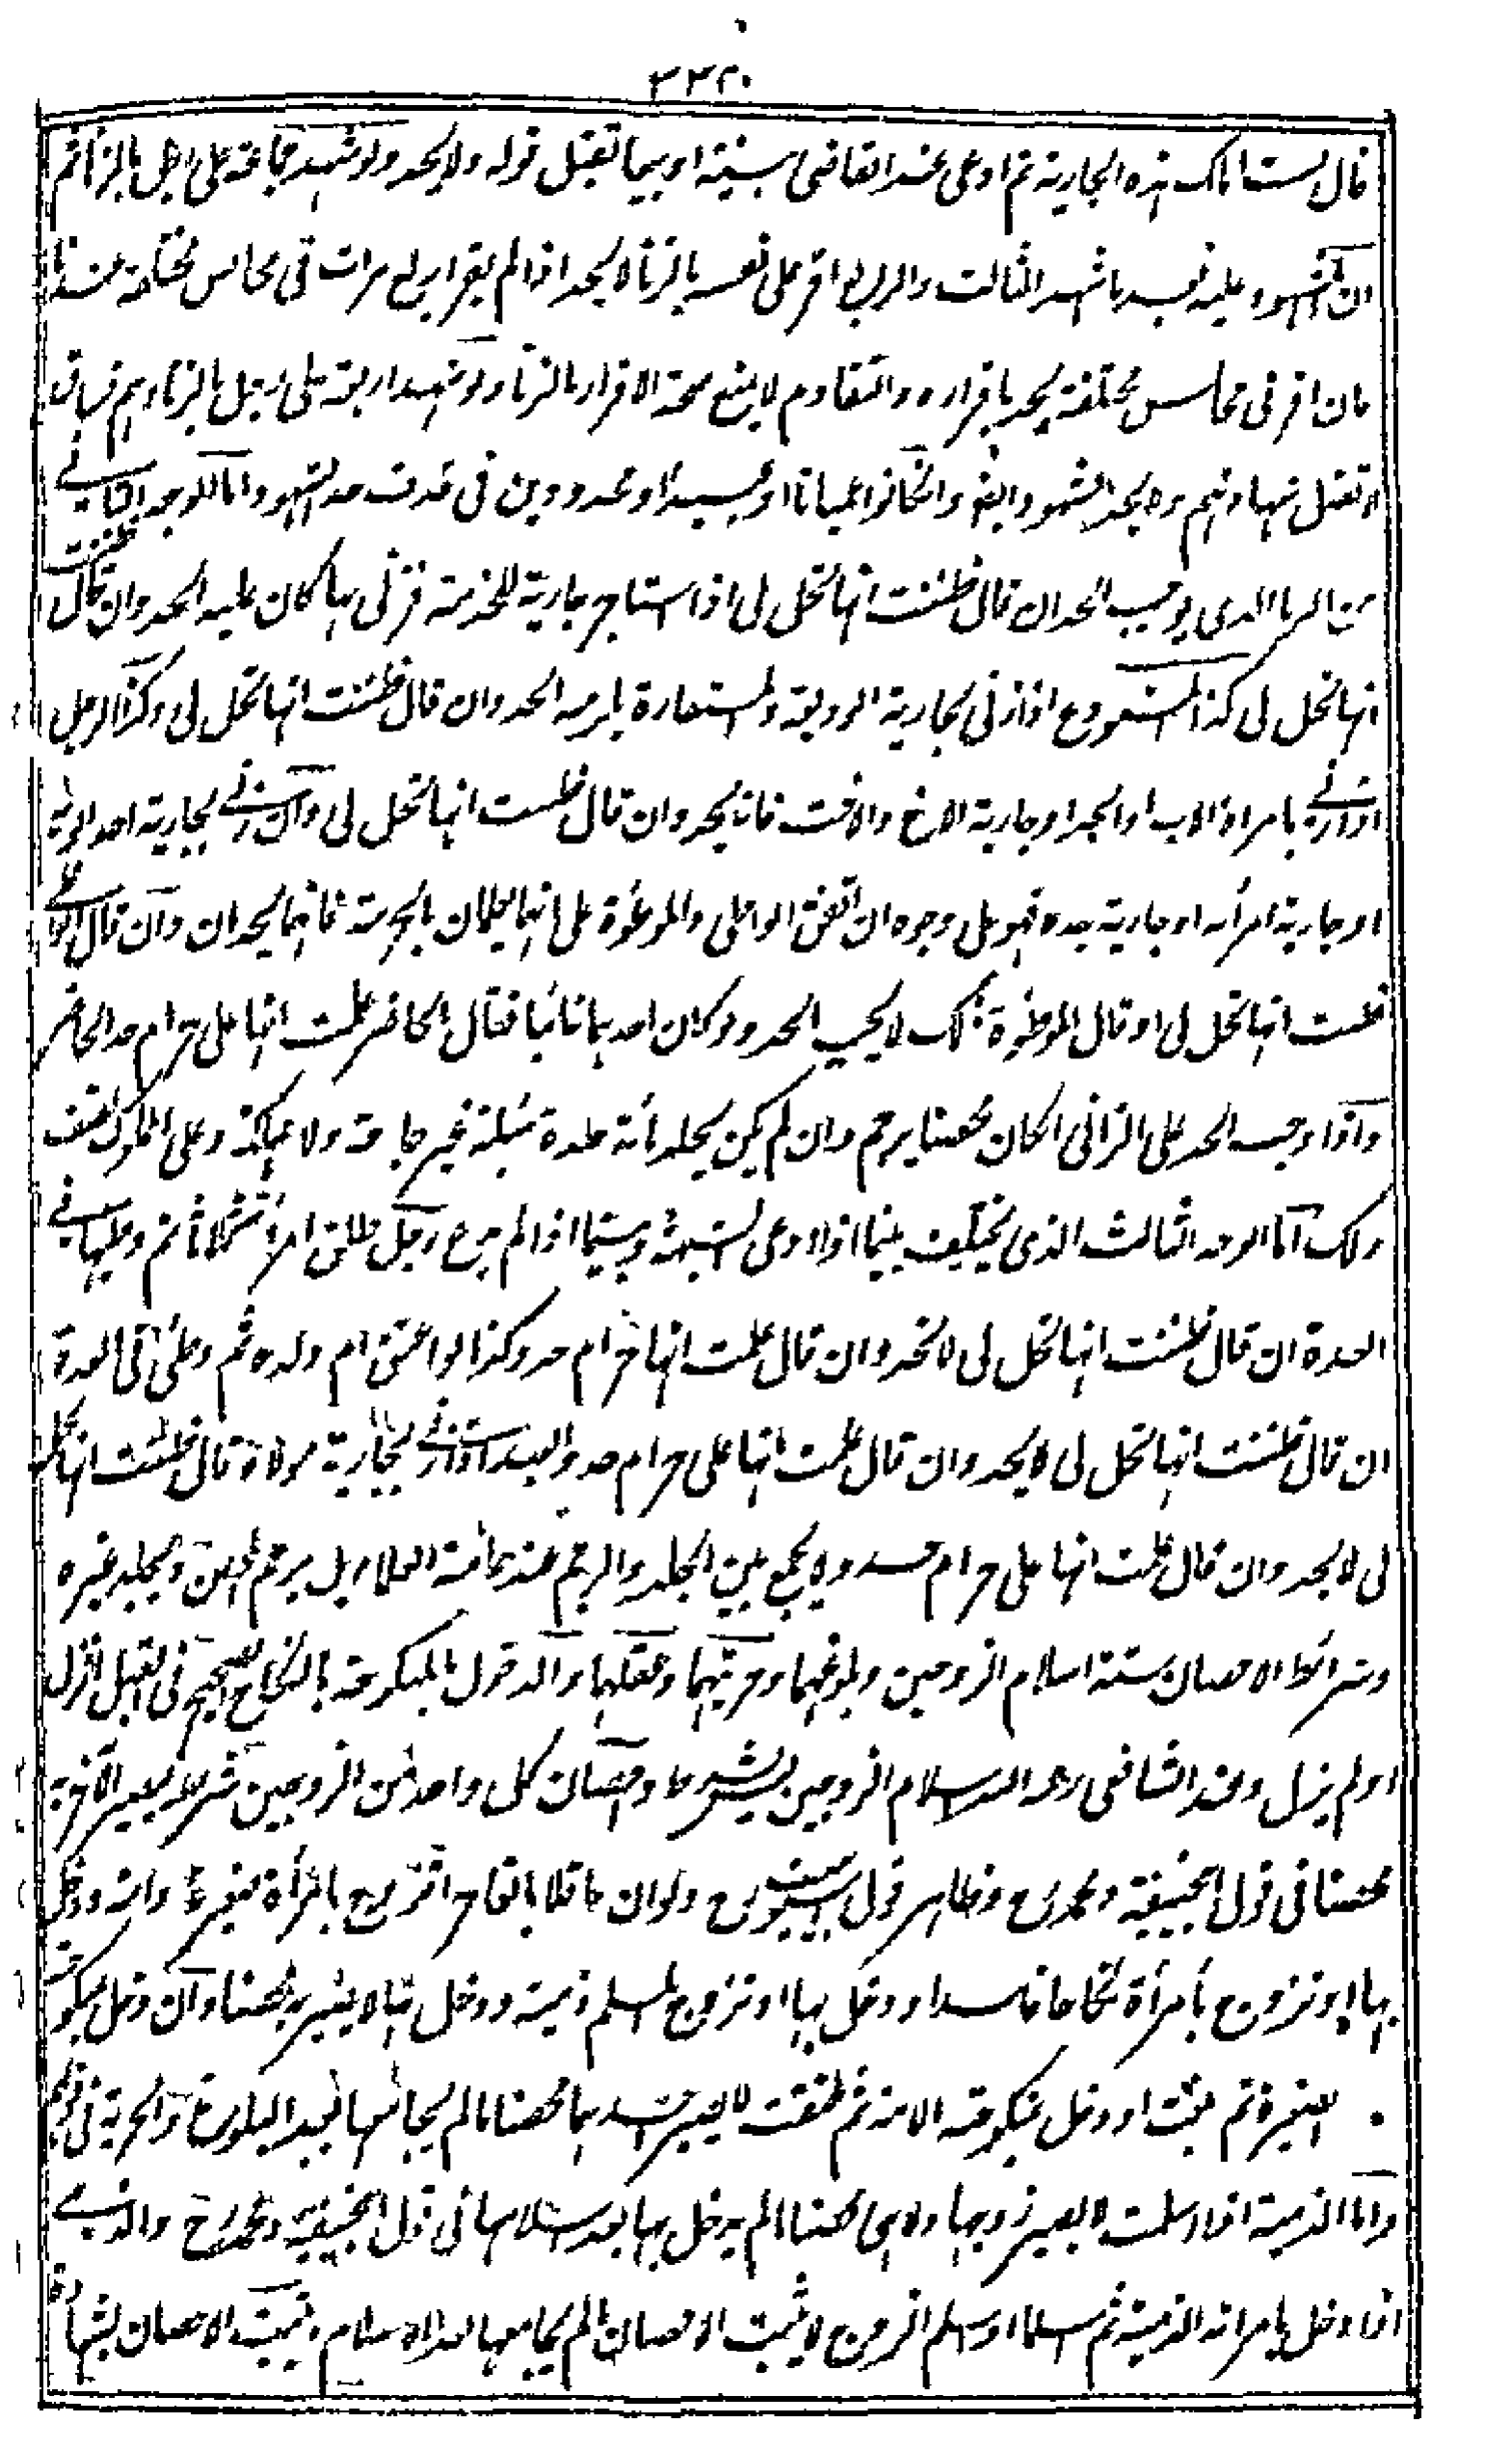 ٣٣٢٠
قال لست املك هذه الجارية ثم ادعى عند القاضي ببينة او يمينا تقبل قوله ولا يحد ولو شهد جماعة على رجل بالزنا ثم
ان المشهود عليه بعد ما شهد الثالث والرابع اقر على نفسه بالزنا لا يحد اذا لم يقر اربع مرات في مجالس مختلفة عندنا
فان اقر في مجالس مختلفة يحد باقراره والتقادم لا يمنع صحة الاقرار بالزنا ولو شهد اربعة على رجل بالزنا وهم فساق
لا تقبل شهادتهم ولا يحد الشهود ايضا وان كانوا عميانا او عبيدا او محدودين في قذف حد الشهود واما الوجه الثاني
من الزنا الذي يوجب الحد ان قال ظننت انها تحل لي اذا استاجر جارية للخدمة فزنى بها كان عليه الحد وان قال ظننت
انها تحل لي كذا المستودع اذا زنى بجارية الوديعة والمستعارة يلزمه الحد وان قال ظننت انها تحل لي وكذا الرجل
اذا زنى بامراة الاب او الجد او جارية الاخ والاخت فانه يحد وان قال ظننت انها تحل لي وان زنى بجارية احد ابويه
او جارية امرأته او جارية جده فهو على وجوه ان اتفق الواطي والموطؤة على انهما يعلمان بالحرمة فانهما يحدان وان قال الواطي
ظننت انها تحل لي او قالت الموطؤة ذلك لا يجب الحد ولو كان احدهما غائبا فقال الحاضر علمت انها علي حرام حد الحاضر
واذا وجب الحد على الزاني ان كان محصنا يرجم وان لم يكن يجلد مائة جلدة غير جارحة ولا مهلكة وعلى المملوك نصف
ذلك اما الوجه الثالث الذي يختلف بينما اذا ادعى الشبهة وبينما اذا لم يدع رجل طلق امرأته ثلاثا ثم وطيها في
العدة ان قال ظننت انها تحل لي لا يحد وان قال علمت انها حرام حد وكذا لو اعتق ام ولده ثم وطئ في العدة
ان قال ظننت انها تحل لي لا يحد وان قال علمت انها علي حرام حد والعبد اذا زنى بجارية مولاه قال ظننت انها تحل
لي لا يحد وان قال علمت انها علي حرام حد ولا يجمع بين الجلد والرجم عند عامة العلماء بل يرجم المحصن ويجلد غيره
وشرائط الاحصان ستة اسلام الزوجين وبلوغهما وحريتهما وعقلهما والدخول بالمنكوحة بالنكاح الصحيح في القبل انزل
او لم ينزل وعند الشافعي رحمه الله اسلام الزوجين ليس بشرط واحصان كل واحد من الزوجين شرط ليصير الاخر به
محصنا في قول ابي حنيفة ومحمد رح وظاهر قول ابي يوسف رح ولو ان عاقلا بالغا حرا تزوج بامرأة صغيرة او امة ودخل
بها او تزوج بامرأة نكاحا فاسدا ودخل بها او تزوج المسلم ذمية ودخل بها لا يصير به محصنا وان دخل بمنكوحته
الصغيرة ثم بلغت او دخل بمنكوحته الامة ثم عتقت لا يصير احدهما محصنا ما لم يجامعها بعد البلوغ والحرية في قولهم
واما الذمية اذا اسلمت لا يصير زوجها ولا هي محصنا ما لم يدخل بها بعد اسلامها في قول ابي حنيفة ومحمد رح والذي
اذا دخل بامرأته الذمية ثم اسلما او اسلم الزوج لا يثبت الاحصان ما لم يجامعها بعد الاسلام ويثبت الاحصان بشهادة